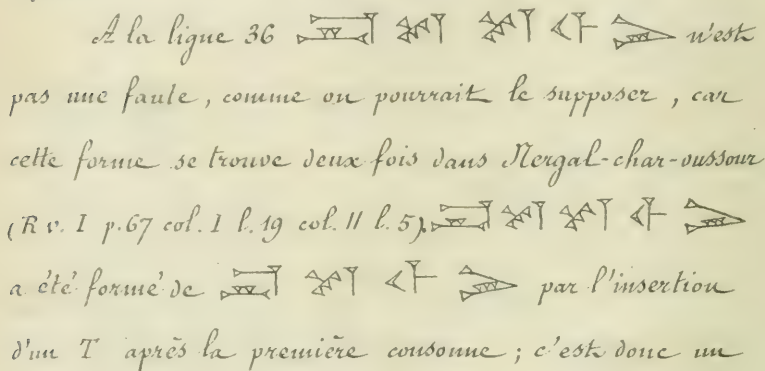 A la ligne 36 𒍑 𒋼 𒋼 𒅆 𒅕 n'est
pas une faute, comme on pourrait le supposer, car
cette forme se trouve deux fois dans Nergal-char-oussour
(R v. I p. 67 col. I l. 19 col. II l. 5). 𒍑 𒋼 𒋼 𒅆 𒅕
a été formé de 𒍑 𒋼 𒅆 𒅕 par l'insertion
d'un T après la première consonne ; c'est donc un